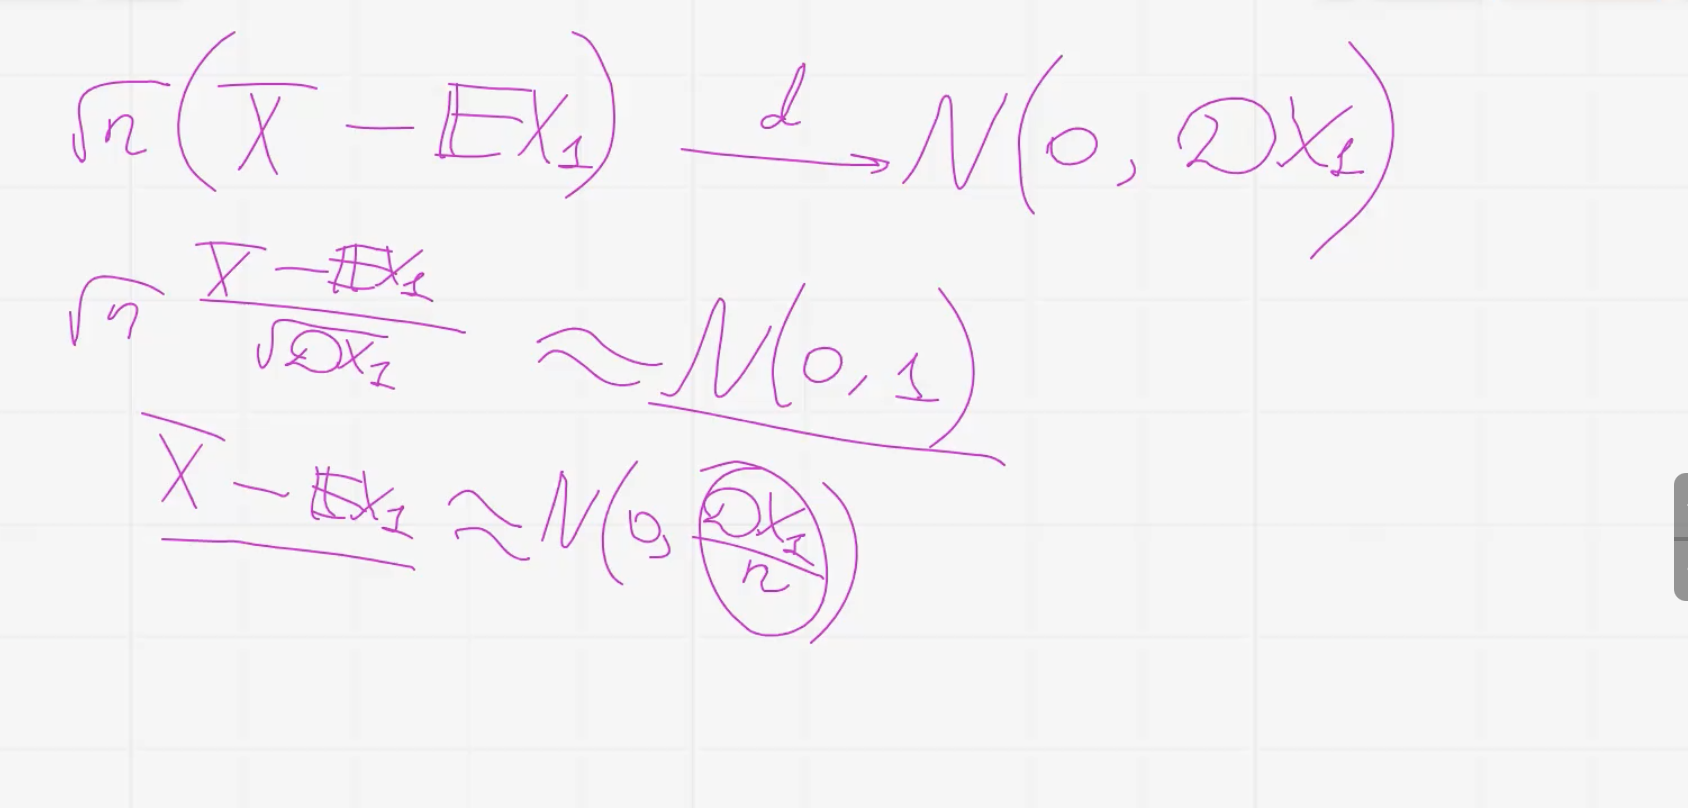 √n (X̅ − 𝔼X₁) →ᵈ N(0, 𝔻X₁)
√n (X̅ − 𝔼X₁)/√𝔻X₁ ≈ N(0, 1)
X̅ − 𝔼X₁ ≈ N(0, 𝔻X₁/n)